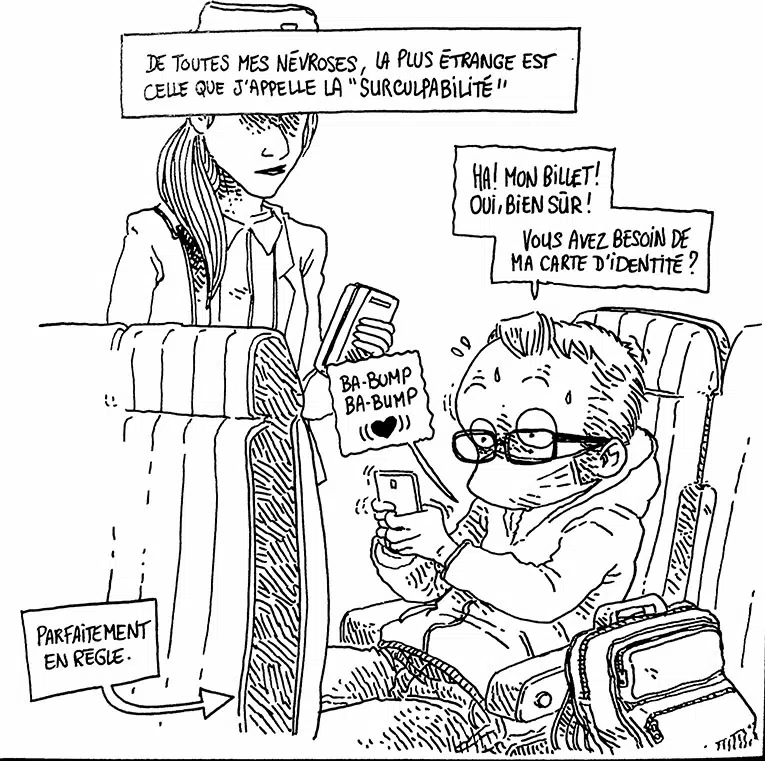 DE TOUTES MES NÉVROSES, LA PLUS ÉTRANGE EST
CELLE QUE J'APPELLE LA "SURCULPABILITÉ"
HA! MON BILLET!
OUI, BIEN SÛR!
VOUS AVEZ BESOIN DE
MA CARTE D'IDENTITÉ?
BA-BUMP
BA-BUMP
PARFAITEMENT
EN RÈGLE.